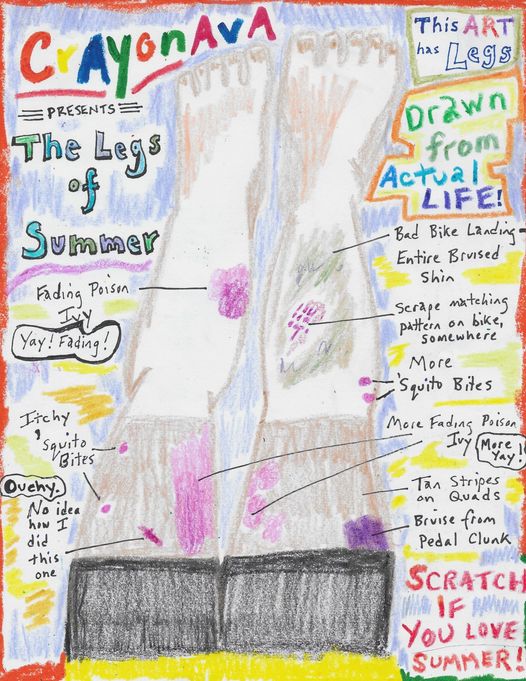 CrAyonAvA
PRESENTS
The Legs
of
Summer
This ART
has Legs
Drawn
from
Actual
LIFE!
Bad Bike Landing
Entire Bruised
Shin
Fading Poison
Ivy
Yay! Fading!
Scrape matching
pattern on bike,
somewhere
More
'Squito Bites
Itchy
'Squito
Bites
More Fading Poison
Ivy
More
Yay!
Ouchy.
No idea
how I
did
this
one
Tan Stripes
on Quads
Bruise from
Pedal Clunk
SCRATCH
IF
YOU LOVE
SUMMER!